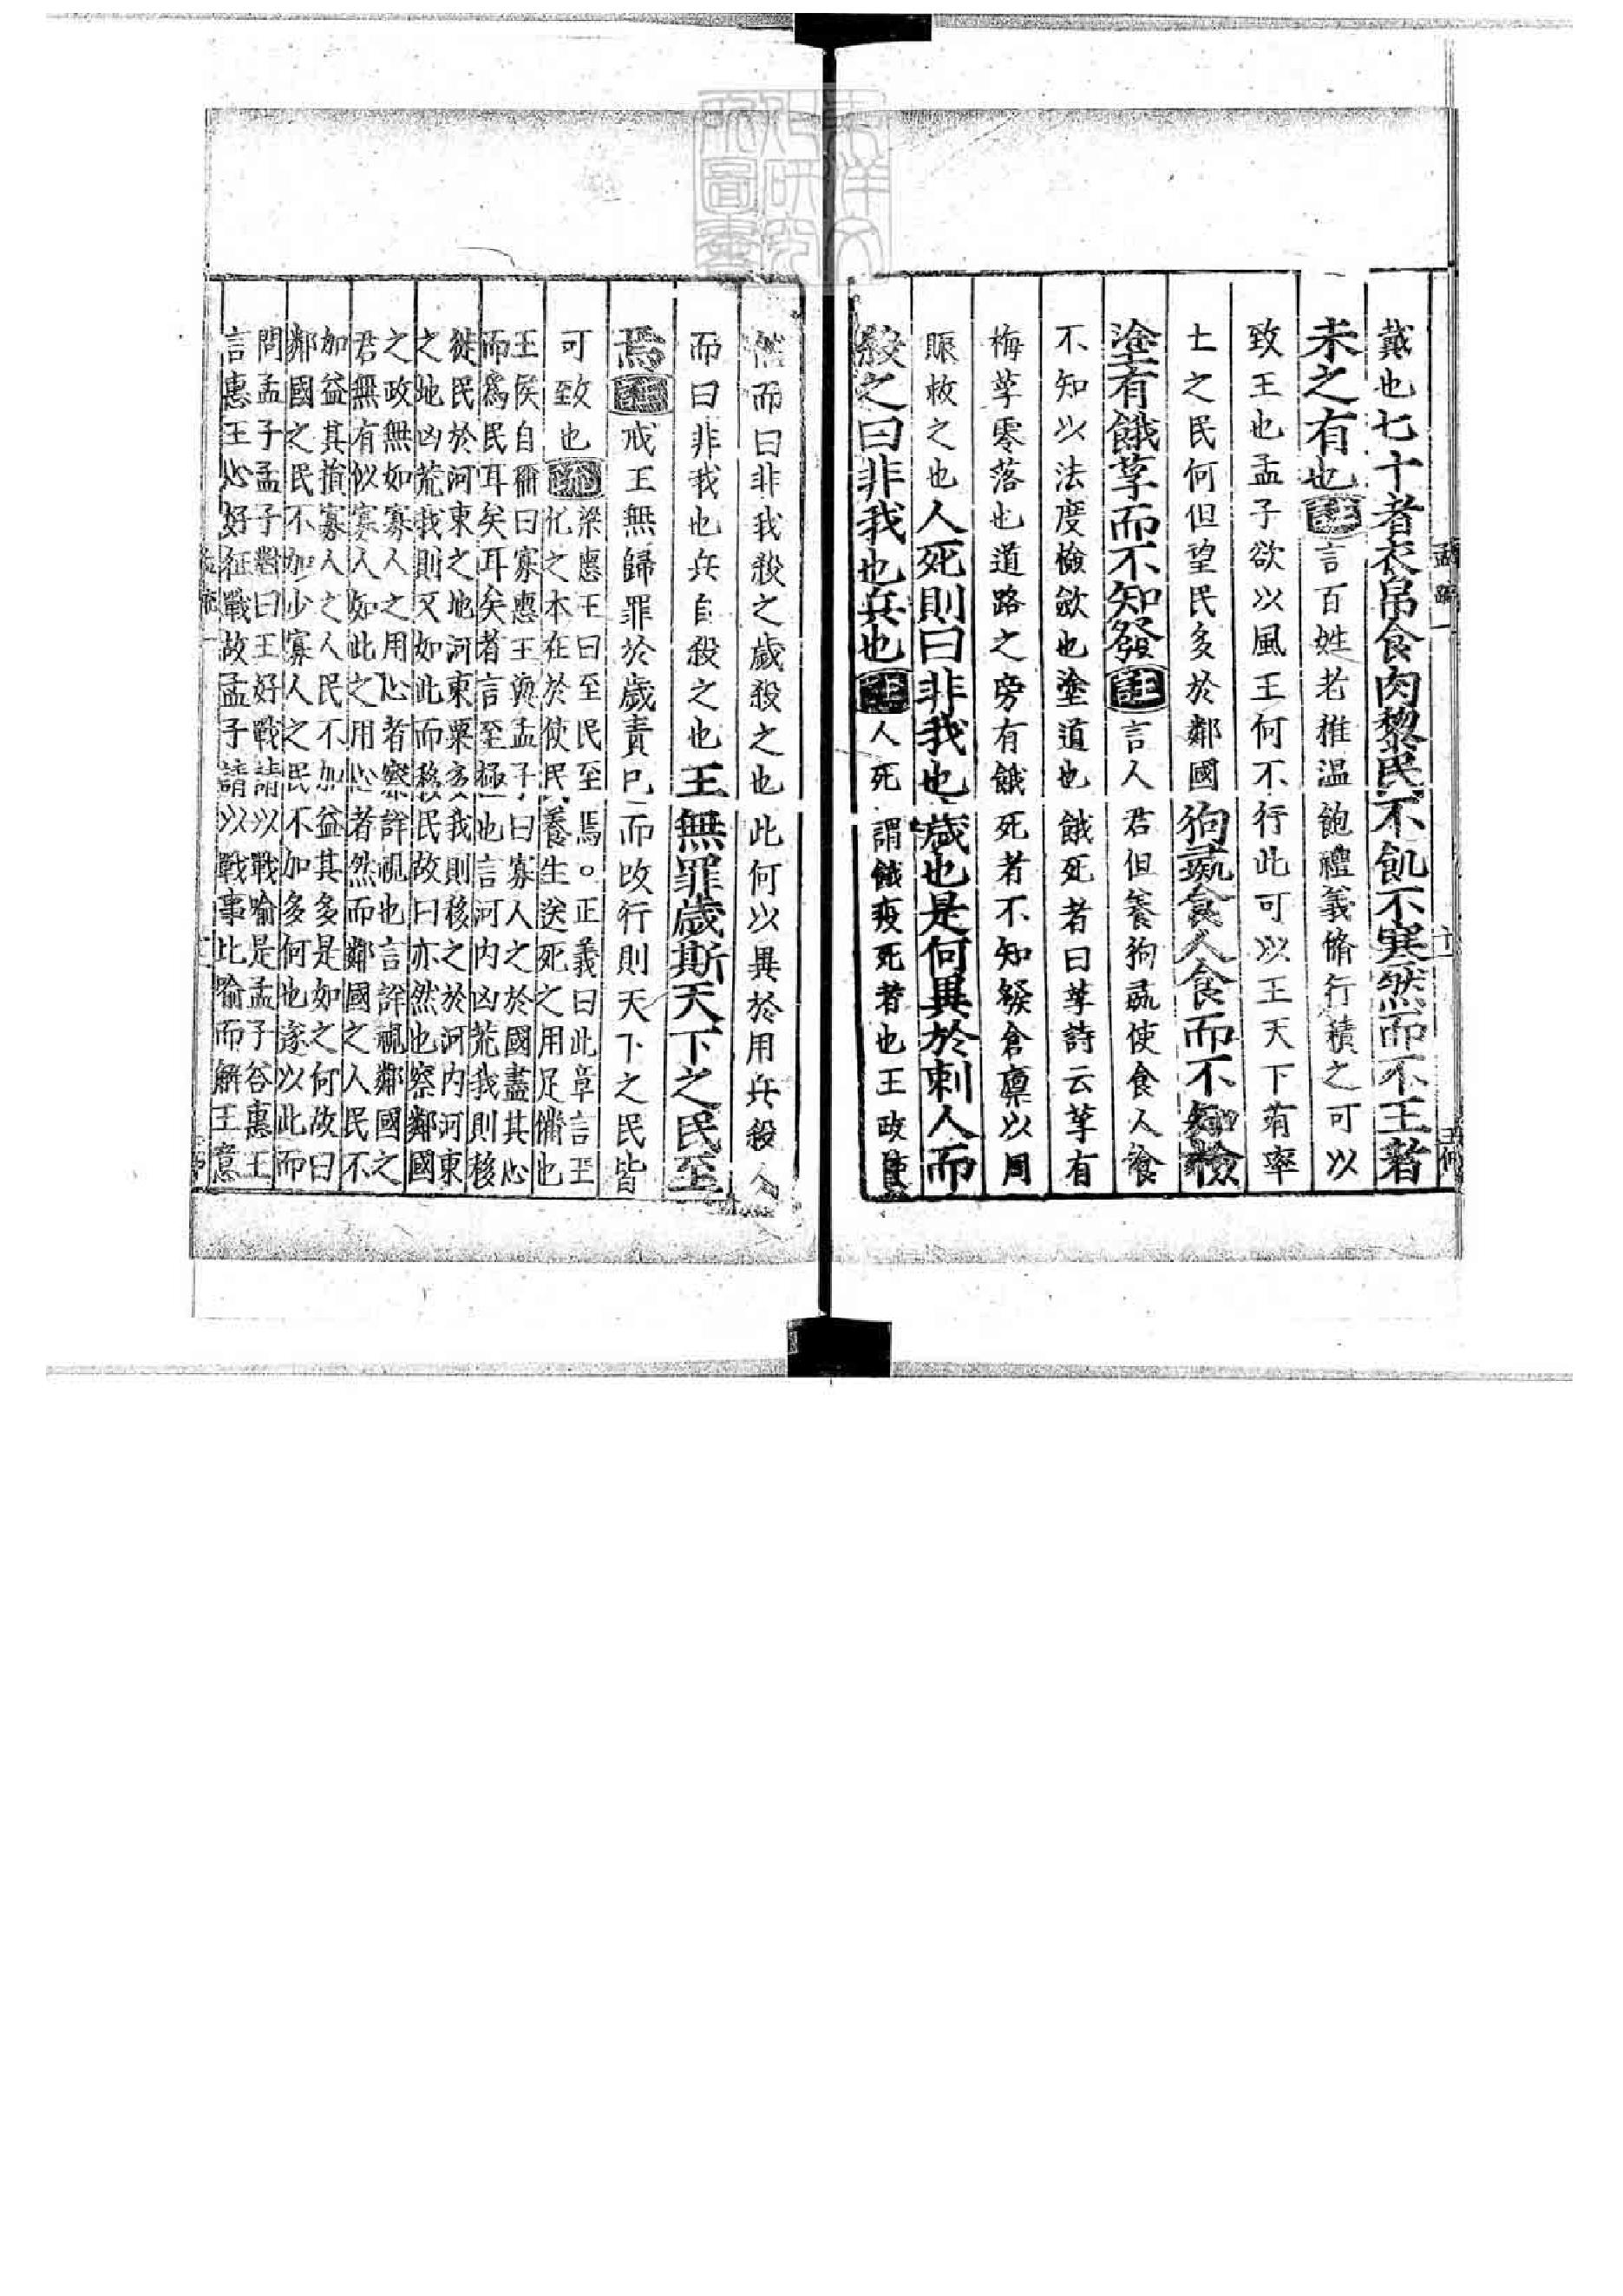 戴也七十者衣帛食肉黎民不飢不寒然而不王者
未之有也注言百姓老稚温飽禮義脩行積之可以
致王也孟子欲以風王何不行此可以王天下有率
土之民何但望民多於鄰國狗彘食人食而不知檢
塗有餓莩而不知發注言人君但養狗彘使食人食
不知以法度檢歛也塗道也餓死者曰莩詩云莩有
梅莩零落也道路之旁有餓死者不知發倉廩以周
賑救之也人死則曰非我也歲也是何異於刺人而
殺之曰非我也兵也注人死謂餓疫死者也王政使
然而曰非我殺之歲殺之也此何以異於用兵殺人
而曰非我也兵自殺之也王無罪歲斯天下之民至
焉注戒王無歸罪於歲責己而改行則天下之民皆
可致也疏梁惠王曰至民至焉○正義曰此章言王
化之本在於使民養生送死之用足備也
王侯自稱曰寡惠王與孟子曰寡人之於國盡其心
而爲民耳矣耳矣者言至極也言河内凶荒我則移
徙民於河東之地河東粟多我則移之於河内河東
之地凶荒我則又如此而移民故曰亦然也察鄰國
之政無如寡人之用心者察詳視也言詳視鄰國之
君無有似寡人如此之用心者然而鄰國之人民不
加益其損寡人之人民不加益其多是如之何故曰
鄰國之民不加少寡人之民不加多何也遂以此而
問孟子孟子對曰王好戰請以戰喻是孟子荅惠王
言惠王心好征戰故孟子請以戰事比喻而解王意